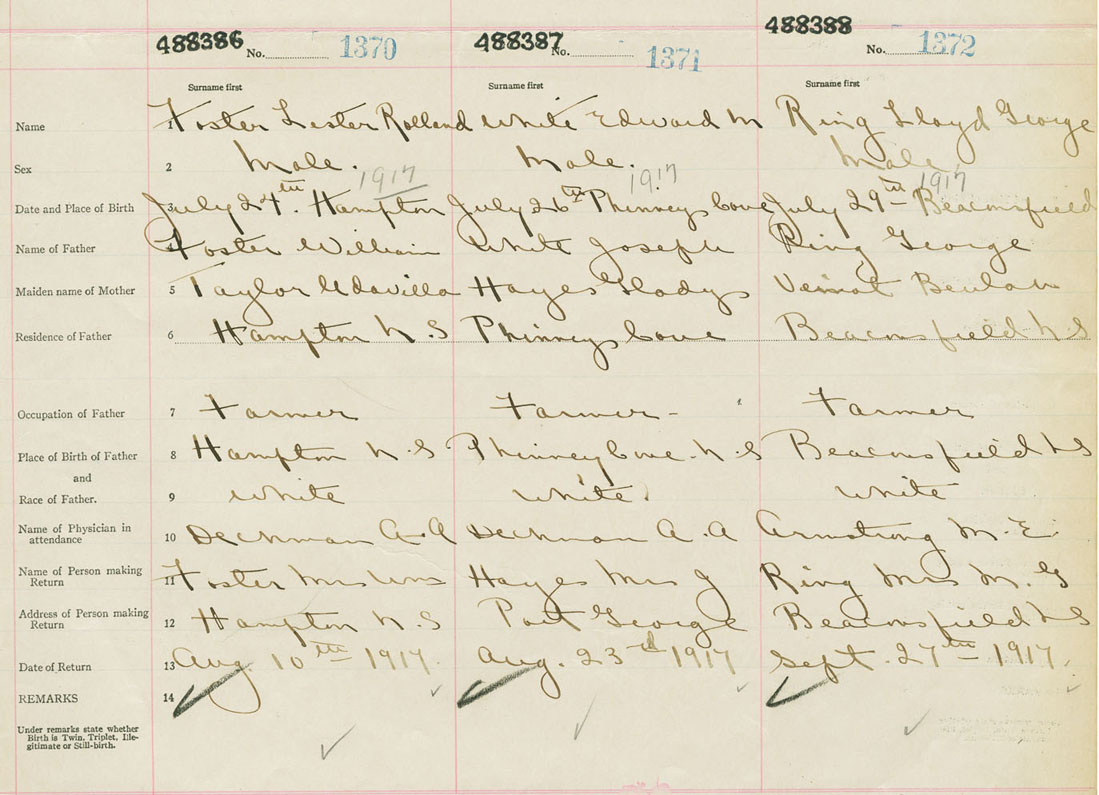 488386 No. 1370 488387 No. 1371 488388 No. 1372
Surname first Surname first Surname first
Name 1 Foster Lester Rolland White Edward M Ring Lloyd George
Sex 2 Male. Male. Male
1917 1917 1917
Date and Place of Birth 3 July 24th. Hampton July 26th Phinneys Cove July 29th Beaconsfield
Name of Father 4 Foster William White Joseph Ring George
Maiden name of Mother 5 Taylor Udavilla Hayes Gladys Veinot Beulah
Residence of Father 6 Hampton N S Phinneys Cove Beaconsfield N.S
Occupation of Father 7 Farmer Farmer - Farmer
Place of Birth of Father 8 Hampton N.S. Phinney Cove - N.S Beaconsfield N S
and
Race of Father. 9 White White. White
Name of Physician in
attendance 10 Deckman A.A Deckman A.A Armstrong M.E.
Name of Person making
Return 11 Foster Mrs Wm Hayes Mrs J Ring Mrs M. G
Address of Person making
Return 12 Hampton N.S Port George Beaconsfield N S
Date of Return 13 Aug. 10th 1917. Aug. 23rd 1917 Sept. 27th 1917.
REMARKS 14
Under remarks state whether
Birth is Twin, Triplet, Ille-
gitimate or Still-birth.